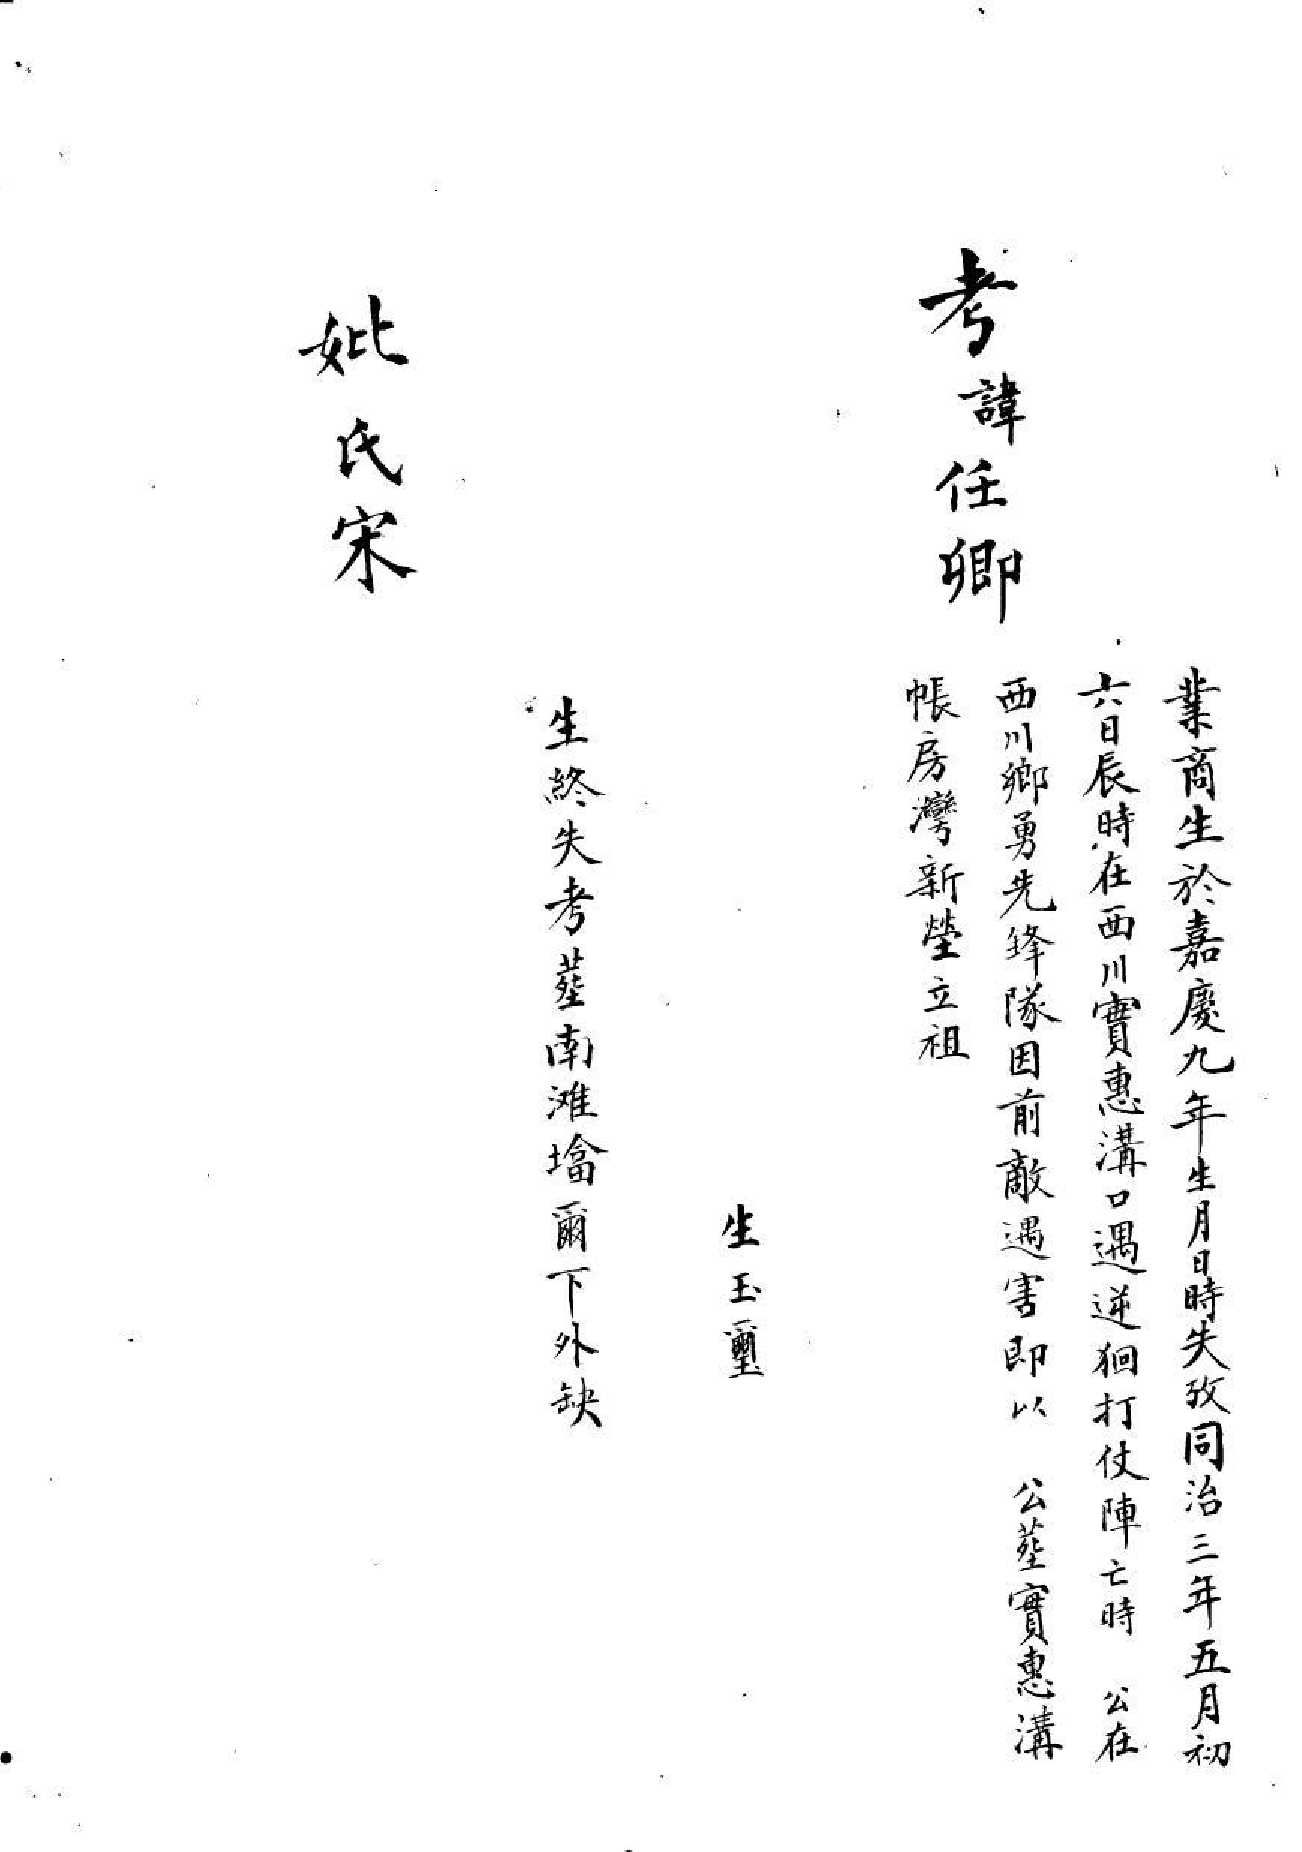 考諱任卿
業商生於嘉慶九年生月日時失攷同治三年五月初
六日辰時在西川實惠溝口遇逆徊打仗陣亡時　公在
西川鄉勇先鋒隊因前敵遇害即以　公塟實惠溝
帳房灣新塋立祖
生玉璽
妣氏宋
生終失考塟南滩墖爾下外缺